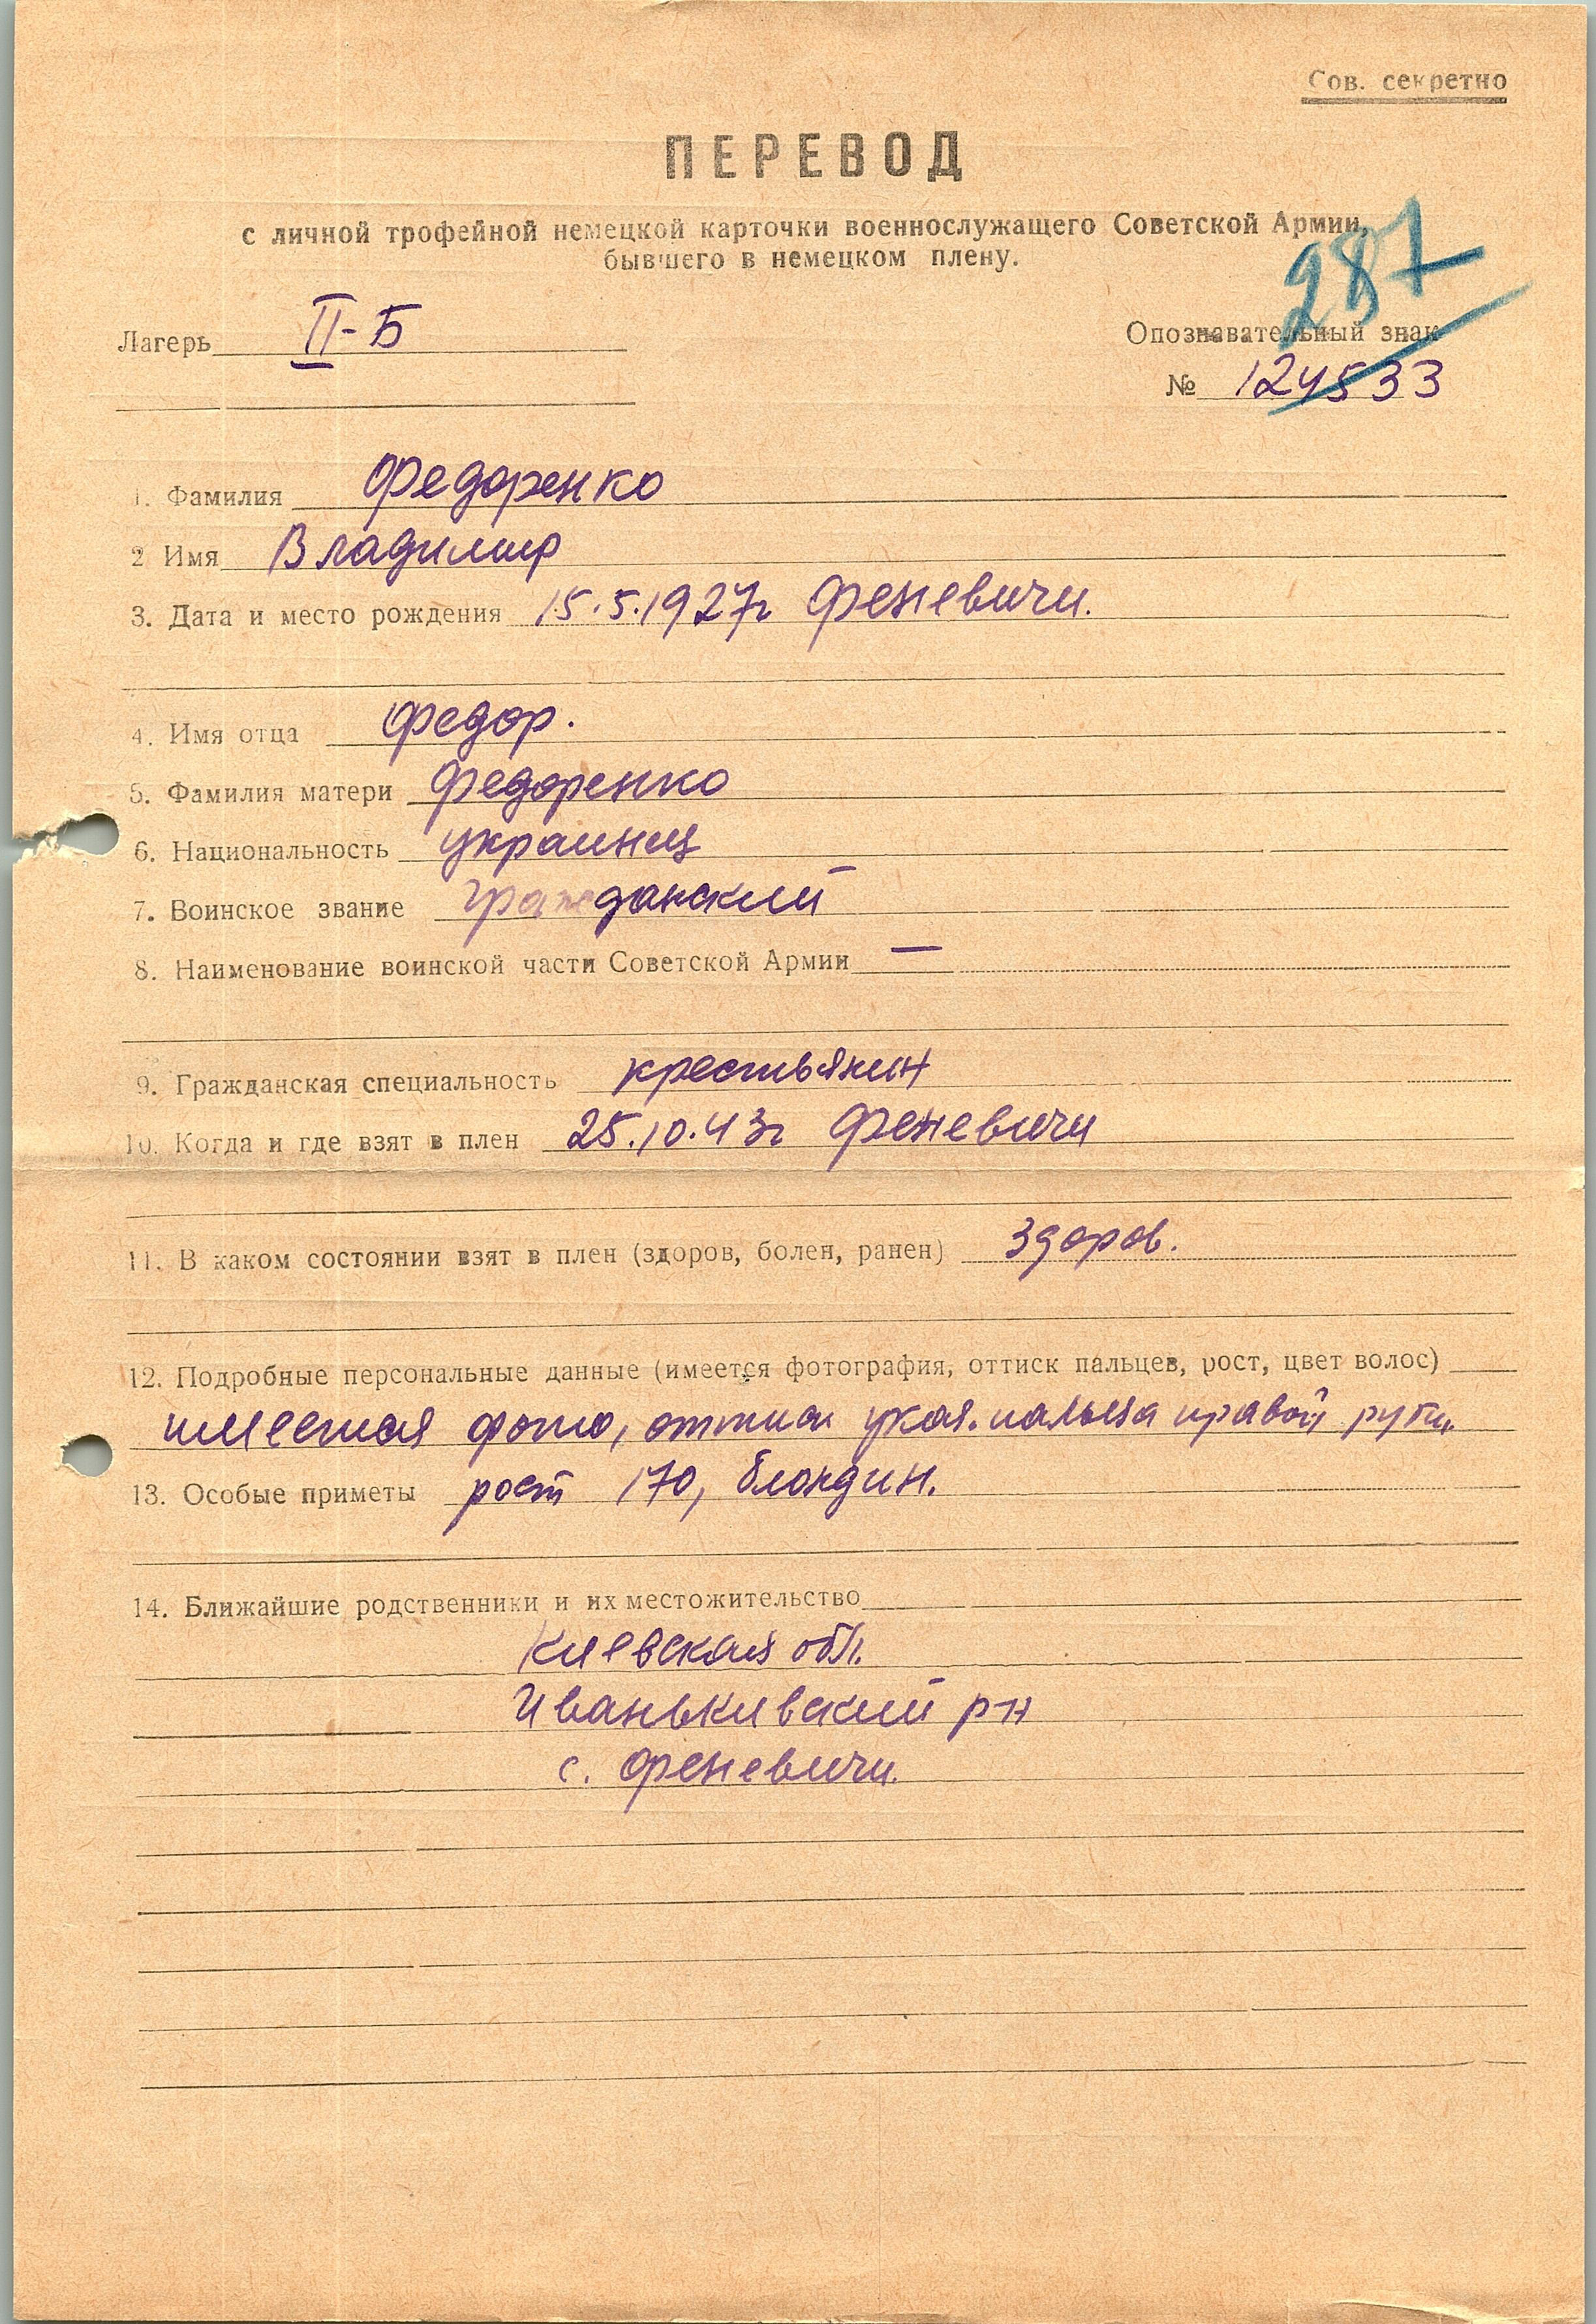 Сов. секретно
ПЕРЕВОД
с личной трофейной немецкой карточки военнослужащего Советской Армии,
бывшего в немецком плену.
287
Лагерь II-Б
Опознавательный знак
№ 124533
1. Фамилия Федоренко
2 Имя Владимир
3. Дата и место рождения 15.5.1927г Феневичи.
4. Имя отца Федор.
5. Фамилия матери Федоренко
6. Национальность украинец
7. Воинское звание гражданский
8. Наименование воинской части Советской Армии —
9. Гражданская специальность крестьянин
10. Когда и где взят в плен 25.10.43г Феневичи
11. В каком состоянии взят в плен (здоров, болен, ранен) здоров.
12. Подробные персональные данные (имеется фотография, оттиск пальцев, рост, цвет волос)
имеется фото, оттиск указ. пальца правой руки,
13. Особые приметы рост 170, блондин.
14. Ближайшие родственники и их местожительство
Киевская обл.
Иванькивский р-н
с. Феневичи.